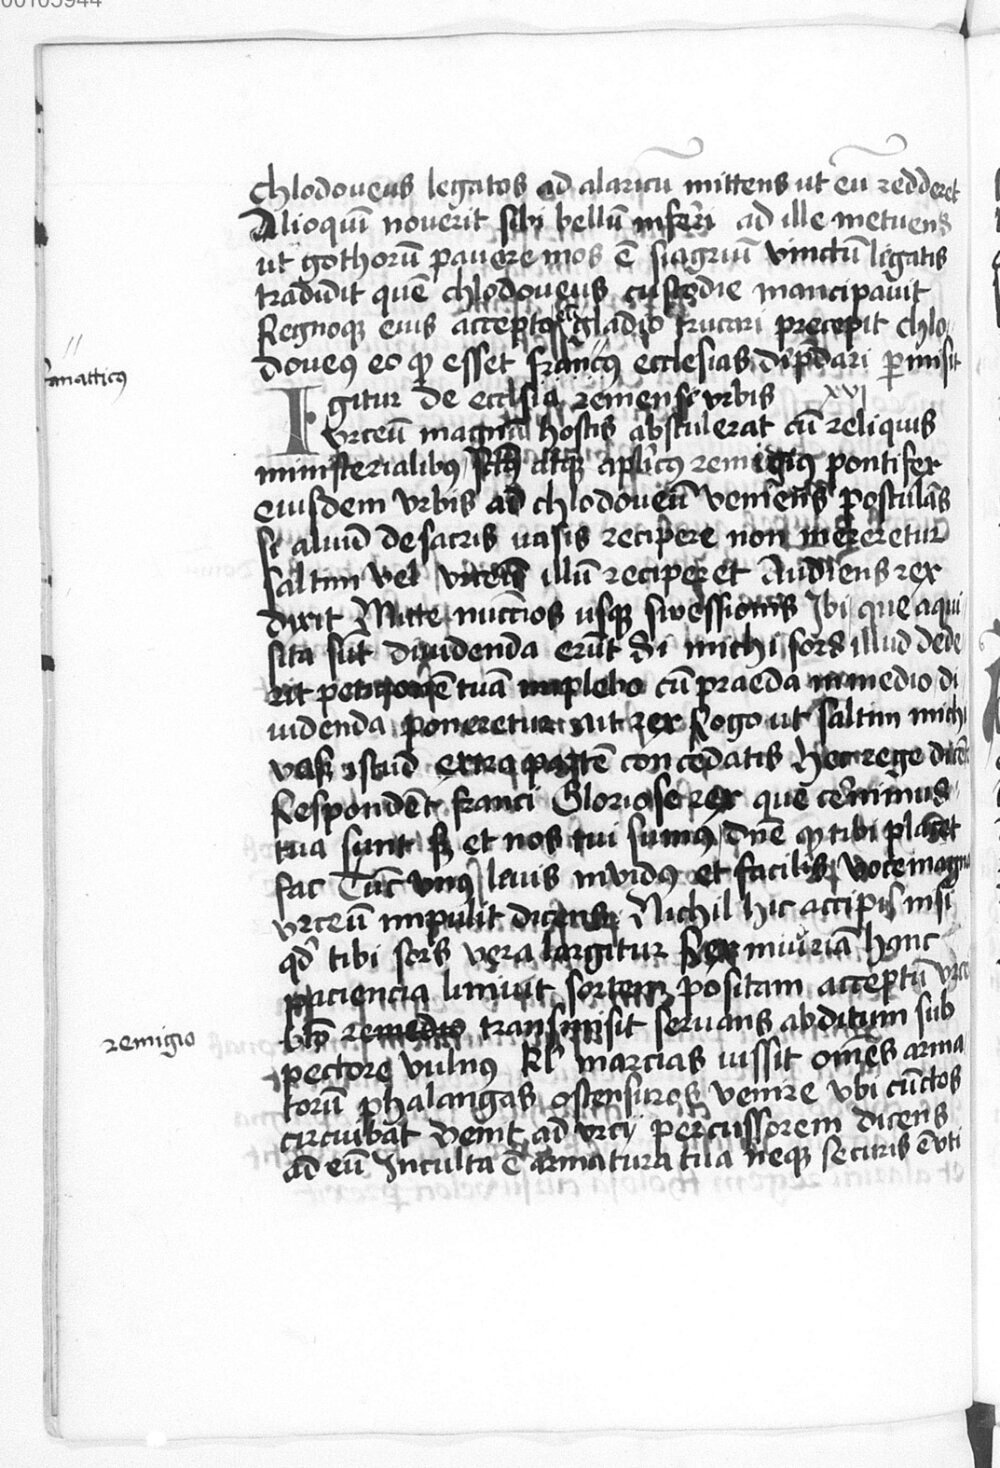 00105944
chlodoveus legatos ad alaricū mittens ut eū redderet
Alioquin noverit sibi bellū inferri ad ille metuens
ut gothorū pavere mos ē siagriū vinctū ligatis
tradidit quē chlodoveus custodie mancipavit
Regnoqꝫ eius accepto gladio trucari precepit chlo
doveꝰ eo ꝙ esset francꝰ ecclesias dip̄dari ꝑmisit
fanatticꝰ
Igitur de ecclsia remense urbis XVI
urceū magnū hostis abstulerat cū reliquis
ministerialibꝰ atqꝫ aplicꝰ remigiꝰ pontifex
eiusdem urbis ad chlodoveū veniens postulās
si aliud de sacris vasis recipere non mereretur
saltim vel urceū illū reciperet Audiens rex
dixit Mitte nuccios usqꝫ swessionis Ibi que aqui
sita sūt dividenda erūt Si michi sors illud dede
rit peticionē tuā implebo cū praeda in medio di
videnda poneretur ait rex Rogo ut saltim michi
vas istud extra partē concedatis Hec rege dicēt
Respondēt franci Gloriose rex que cernimus
tua sunt sꝫ et nos tui sumꝰ dn̄e ꝙ tibi placet
fac Tūc unꝰ levis invidꝰ et facilis voce magna
urceū impulit dicens Nichil hic accipis nisi
qd̄ tibi sors vera largitur Rex iniuriā hanc
paciencia linivit sortem positam acceptū urceū
remigio
bt̄o remedio transmisit servans abditum sub
pectore vulnꝰ Kl' marcias iussit omēs arma
torū phalangas ostensuros venire ubi cūctos
circuibat venit ad urcij percussorem dicens
ad eū Inculta ē armatura tua neqꝫ securis ē uti